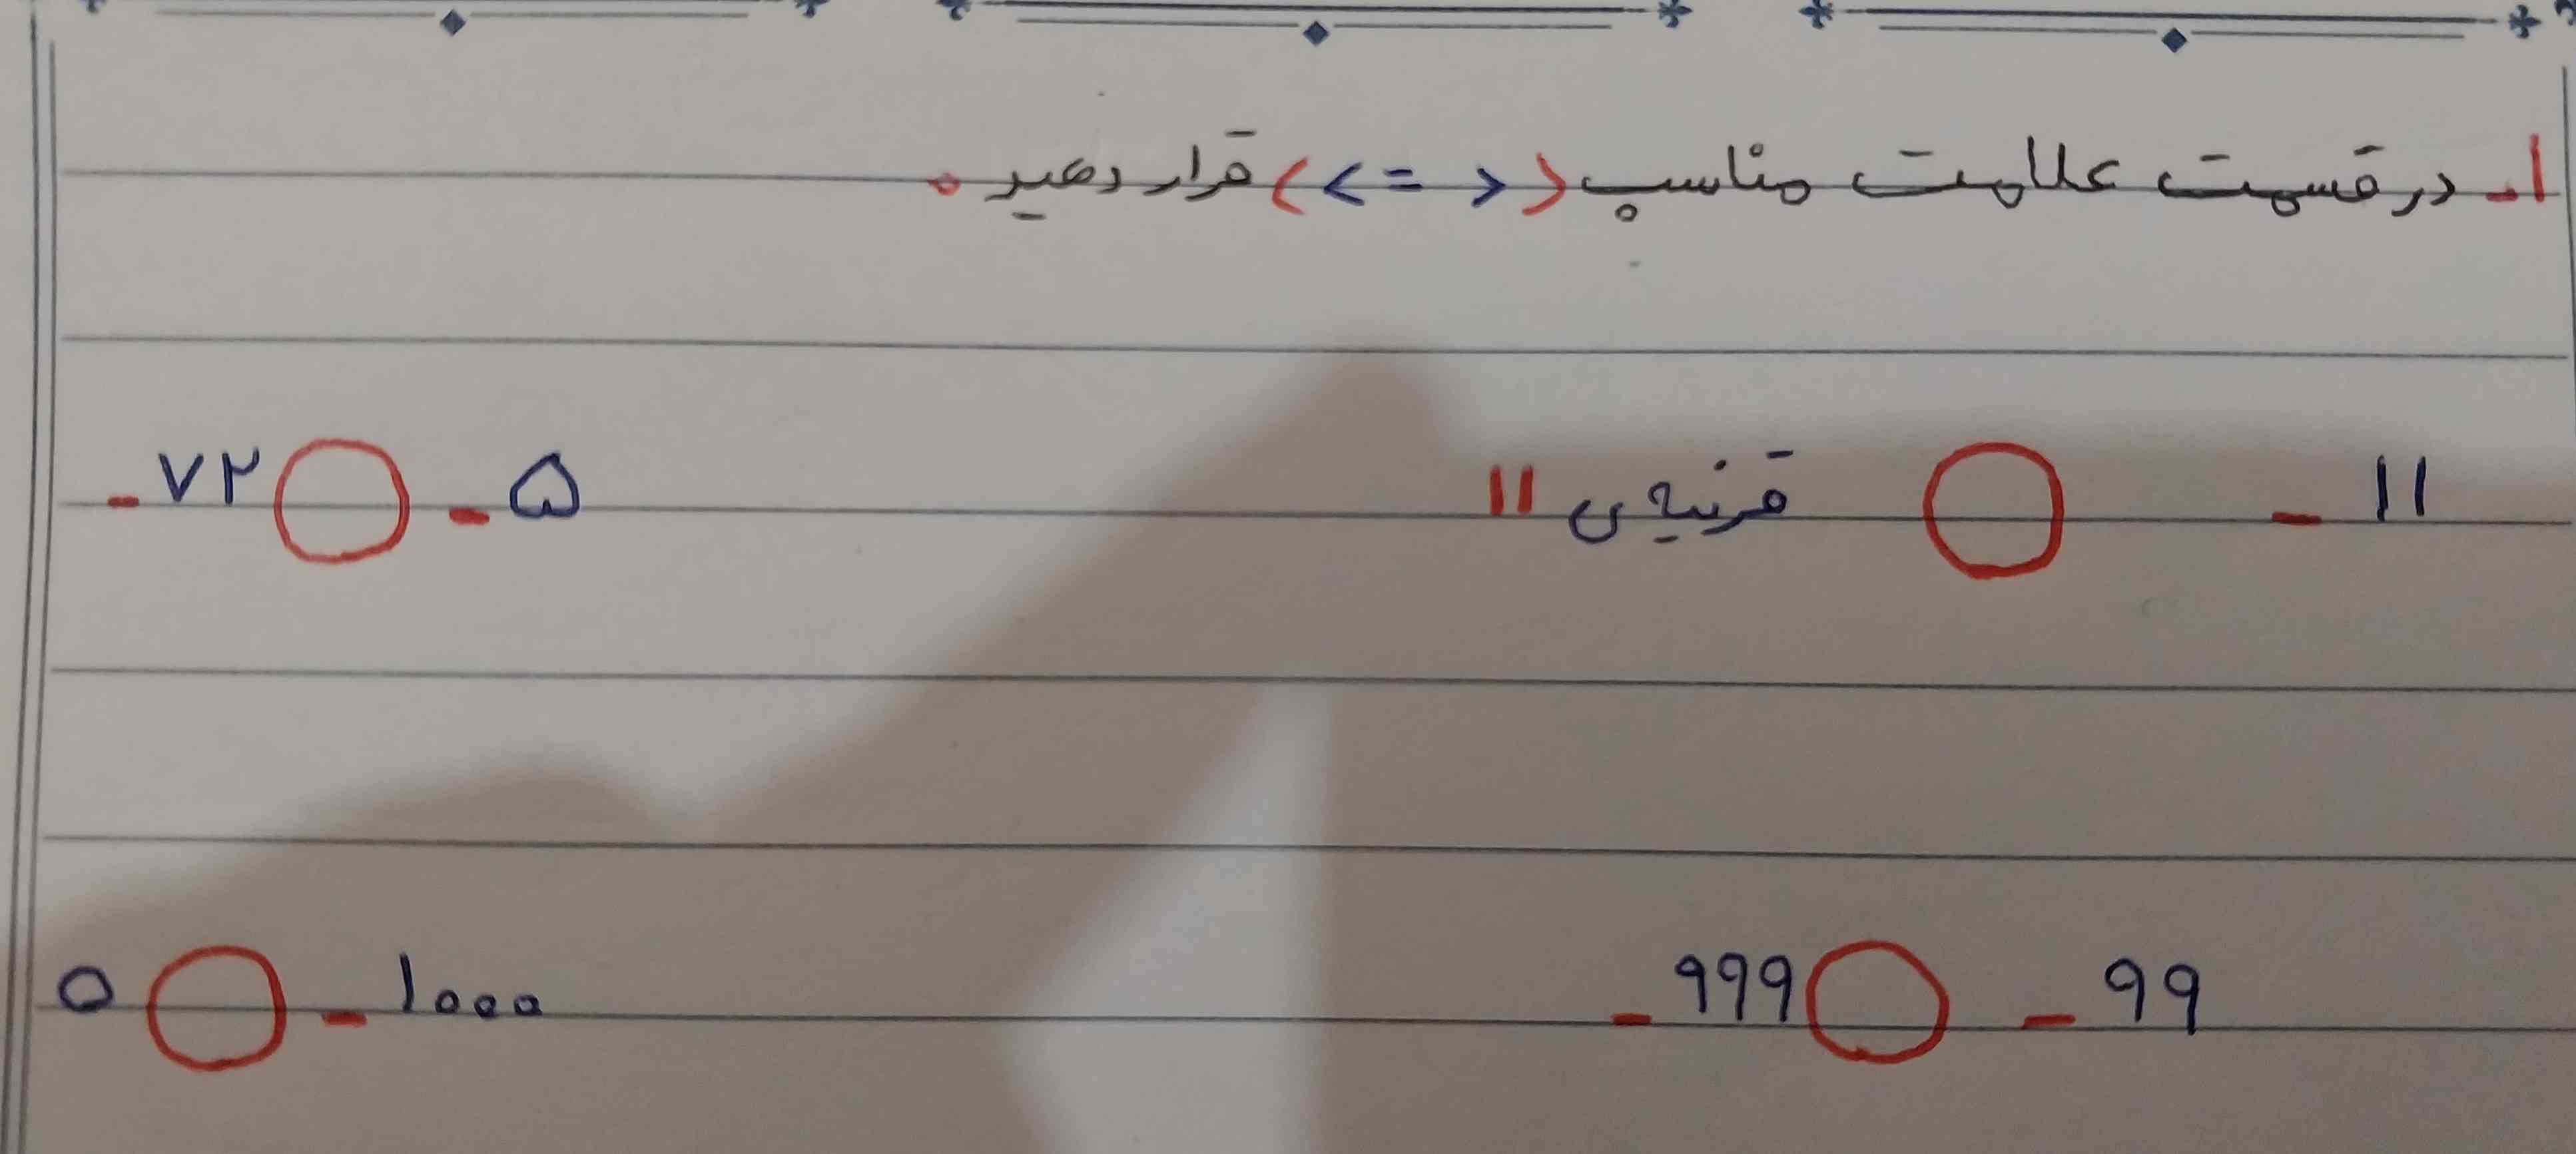 ۱- در قسمت علامت مناسب (< = >) قرار دهید.
-۱۱ ○ قرنیه ی ۱۱
-۷۲ ○ -۵
-۹۹۹ ○ -۹۹
۰ ○ -۱۰۰۰